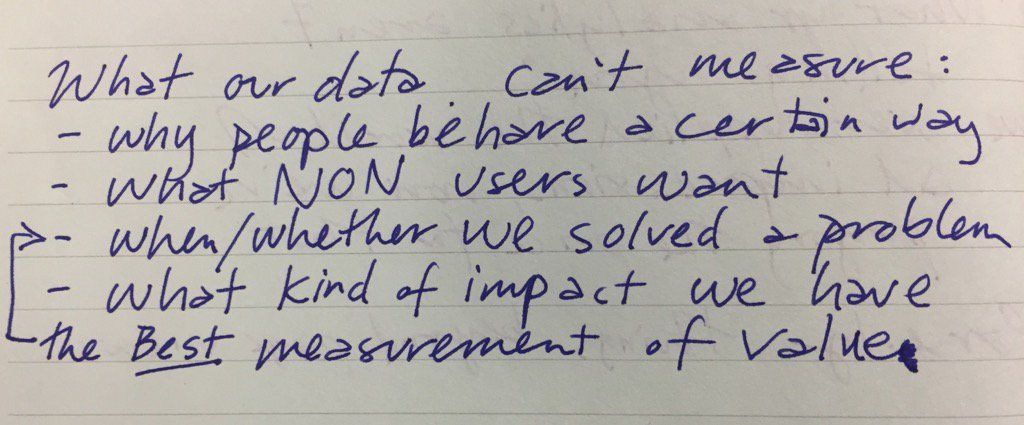 What our data can't measure:
- why people behave a certain way
- what NON users want
- when/whether we solved a problem
- what kind of impact we have
the BEST measurement of value.